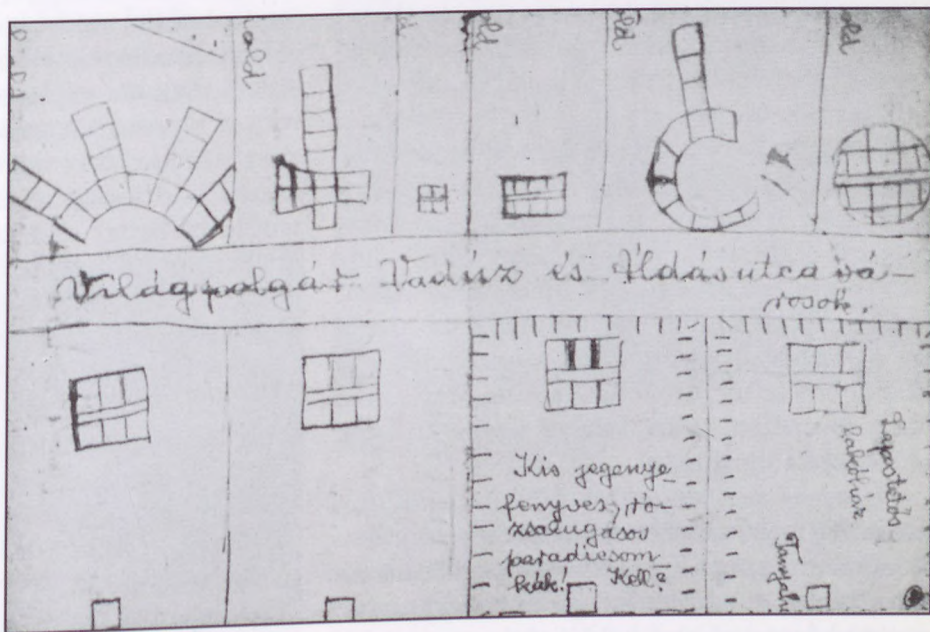 old
old
old
old
Világpolgár Vadász és Áldásutca vá-
rosok.
Kis jegenye
fenyves, ró-
zsalugásos
paradicsom
kák! Kell?
Lapostetős
lakóház